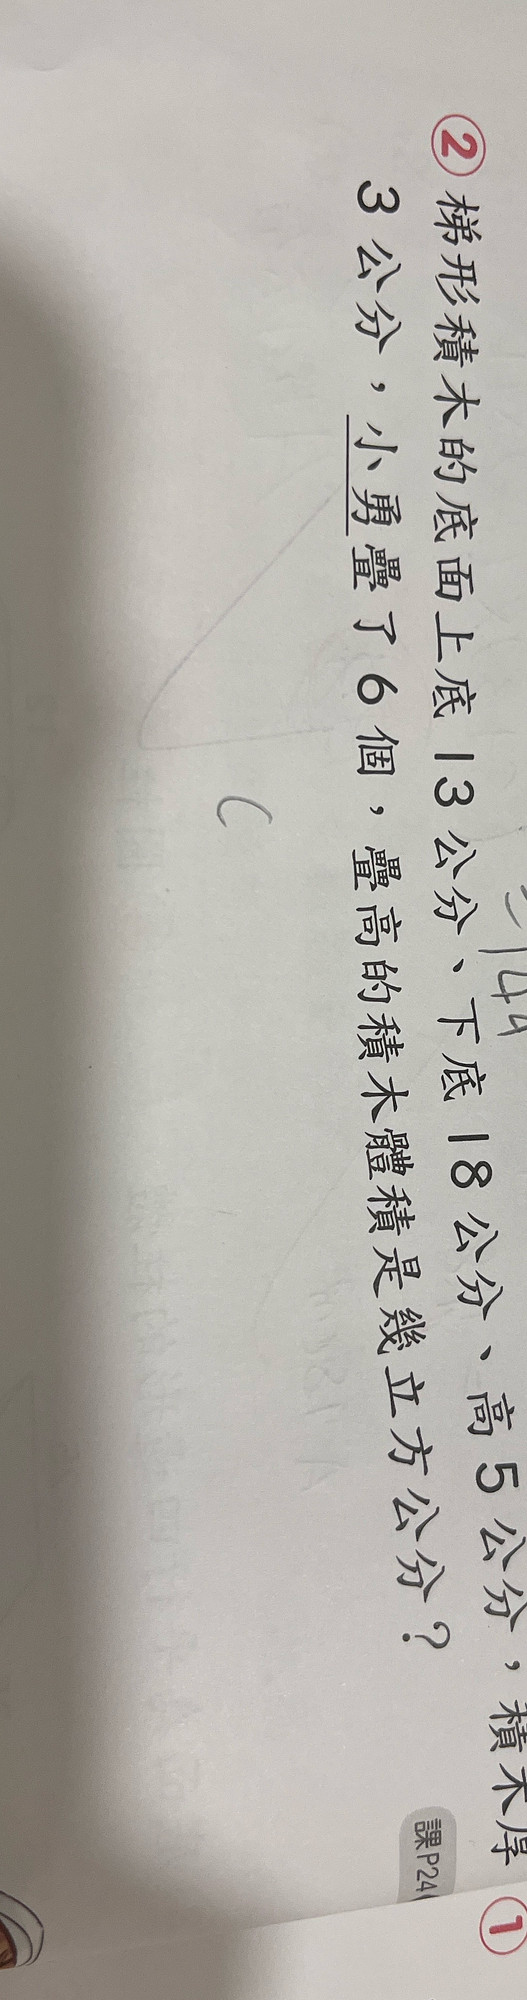 ②梯形積木的底面上底13公分、下底18公分、高5公分，積木厚
3公分，小勇疊了6個，疊高的積木體積是幾立方公分？
課P24
①